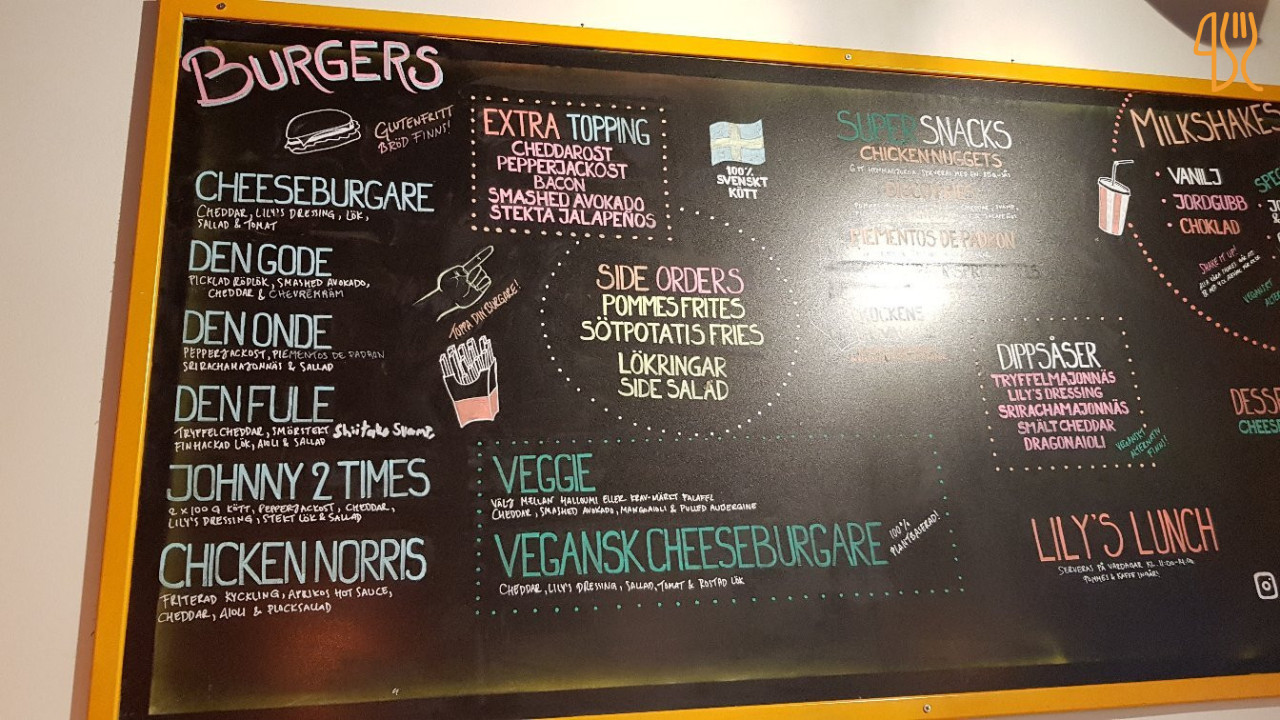 BURGERS
GLUTENFRITT
BRÖD FINNS!
CHEESEBURGARE
CHEDDAR, LILY'S DRESSING, LÖK,
SALLAD & TOMAT
DEN GODE
PICKLAD RÖDLÖK, SMASHED AVOKADO,
CHEDDAR & CHEVREKRÄM
DEN ONDE
PEPPERJACKOST, PIEMENTOS DE PADRON
SRIRACHAMAJONNÄS & SALLAD
DEN FULE
TRYFFELCHEDDAR, SMÖRSTEKT Shiitake Svamp,
FINHACKAD LÖK, AIOLI & SALLAD
JOHNNY 2 TIMES
2 x 100 G KÖTT, PEPPERJACKOST, CHEDDAR,
LILY'S DRESSING, STEKT LÖK & SALLAD
CHICKEN NORRIS
FRITERAD KYCKLING, APRIKOS HOT SAUCE,
CHEDDAR, AIOLI & PLOCKSALLAD
EXTRA TOPPING
CHEDDAROST
PEPPERJACKOST
BACON
SMASHED AVOKADO
STEKTA JALAPEÑOS
TOPPA DIN BURGARE!
100%
SVENSKT
KÖTT
SIDE ORDERS
POMMES FRITES
SÖTPOTATIS FRIES
LÖKRINGAR
SIDE SALAD
VEGGIE
VÄLJ MELLAN HALLOUMI ELLER KRAV-MÄRKT FALAFEL
CHEDDAR, SMASHED AVOKADO, MANGOAIOLI & PULLED AUBERGINE
VEGANSK CHEESEBURGARE
100%
PLANTBASERAD!
CHEDDAR, LILY'S DRESSING, SALLAD, TOMAT & ROSTAD LÖK
SUPER SNACKS
CHICKEN NUGGETS
PIEMENTOS DE PADRON
DIPPSÅSER
TRYFFELMAJONNÄS
LILY'S DRESSING
SRIRACHAMAJONNÄS
SMÄLT CHEDDAR
DRAGONAIOLI
VEGANSKT
ALTERNATIV
FINNS!
MILKSHAKES
VANILJ
JORDGUBB
CHOKLAD
SHAKE IT UP!
LILY'S LUNCH
SERVERAS PÅ VARDAGAR KL. 11:00-14:00
POMMES & KAFFE INGÅR!